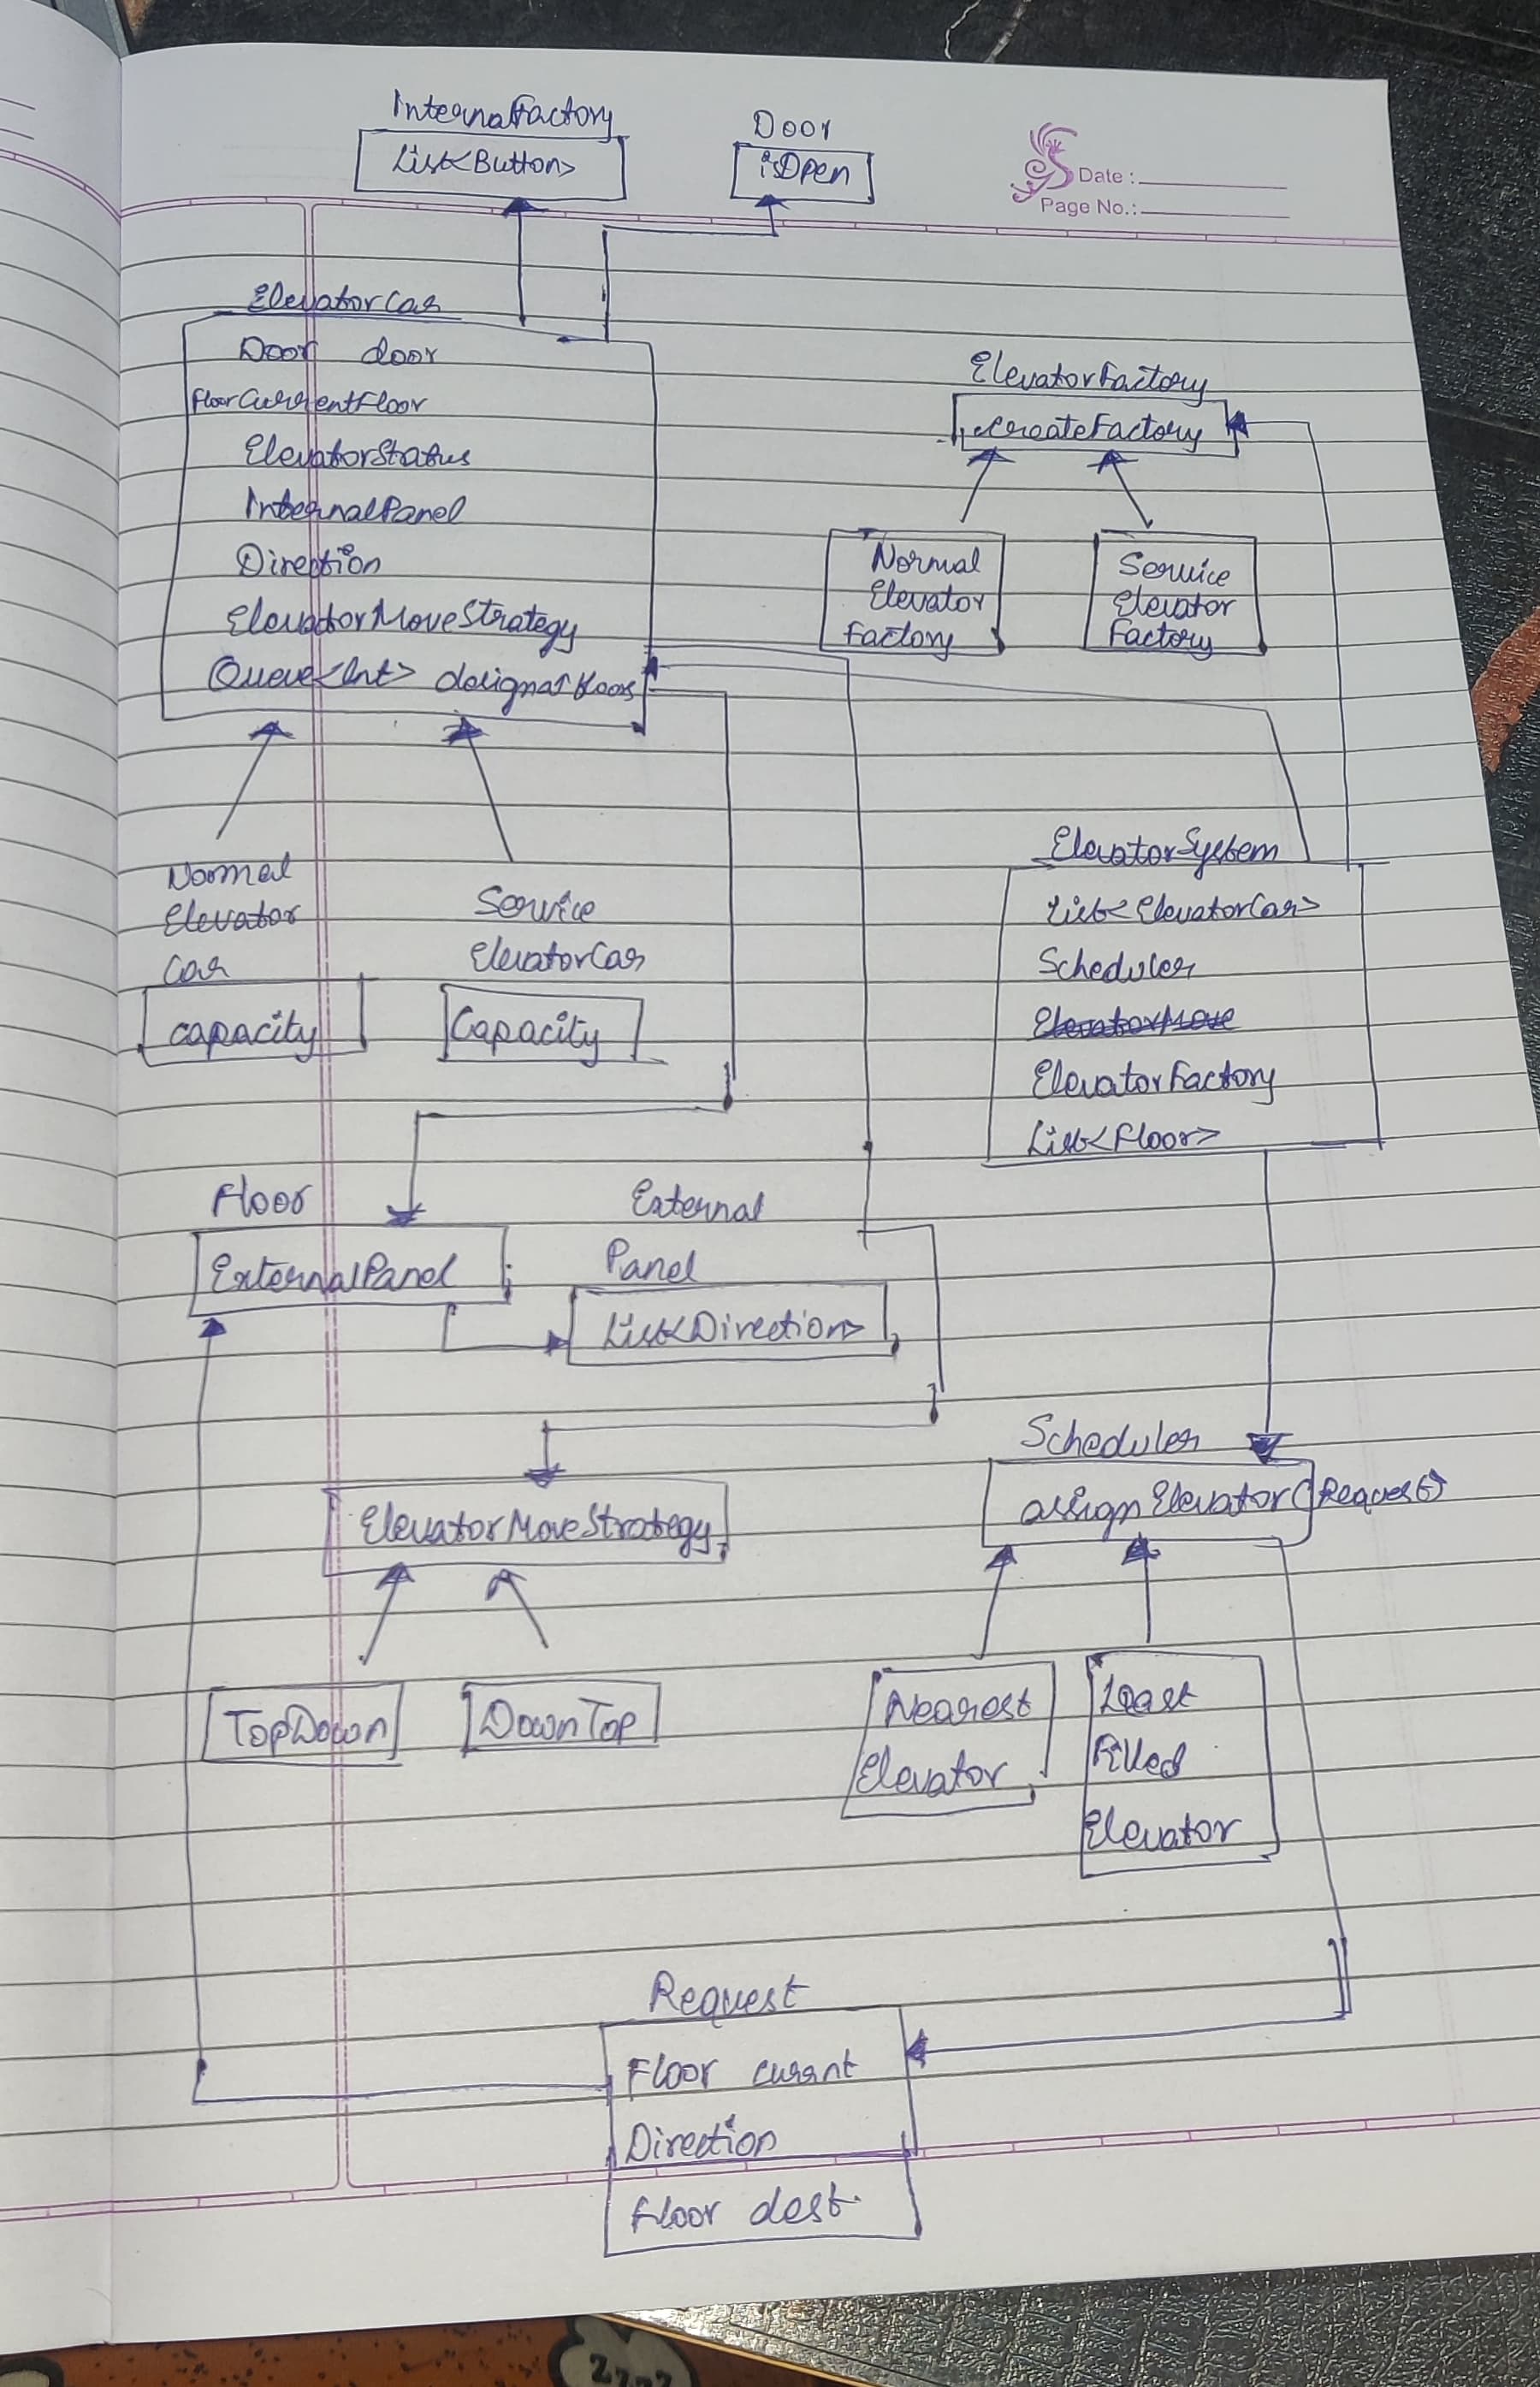 InternaFactory
List<Button>
Door
isOpen
Date :
Page No.:
ElevatorCar
Door door
Floor CurrentFloor
ElevatorStatus
InternalPanel
Direction
ElevatorMoveStrategy
Queue<Int>
ElevatorFactory
createFactory
Normal
Elevator
Factory
Service
Elevator
Factory
Normal
Elevator
Car
capacity
Service
ElevatorCar
Capacity
ElevatorSystem
List<ElevatorCar>
Scheduler
ElevatorMove
ElevatorFactory
List<Floor>
Floor
ExternalPanel
External
Panel
List<Direction>
ElevatorMoveStrategy
TopDown
DownTop
Scheduler
assignElevator(Request)
Nearest
Elevator
Least
Filled
Elevator
Request
Floor curant
Direction
Floor dest.